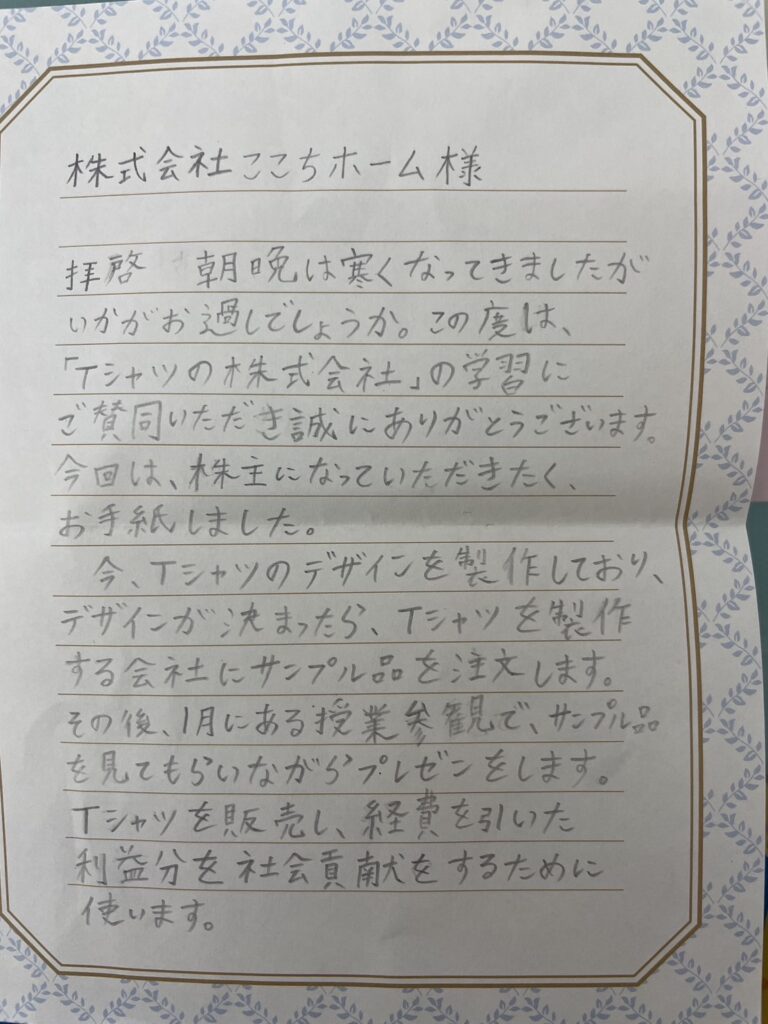 株式会社ここちホーム様
拝啓　朝晩は寒くなってきましたが
いかがお過しでしょうか。この度は、
「Tシャツの株式会社」の学習に
ご賛同いただき誠にありがとうございます。
今回は、株主になっていただきたく、
お手紙しました。
今、Tシャツのデザインを製作しており、
デザインが決まったら、Tシャツを製作
する会社にサンプル品を注文します。
その後、1月にある授業参観で、サンプル品
を見てもらいながらプレゼンをします。
Tシャツを販売し、経費を引いた
利益分を社会貢献をするために
使います。